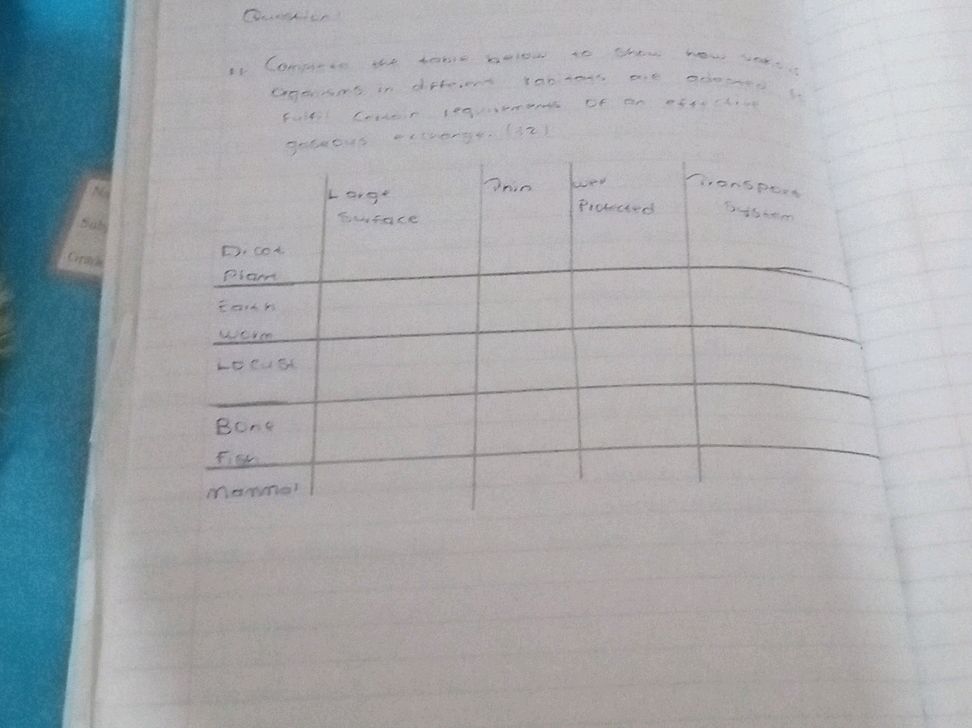 Question
1. Complete the table below to show how various
organisms in different habitats are adapted to
fulfil certain requirements of an effective
gaseous exchange. (32)
Large Surface
Thin
Well Protected
Transport System
Dicot Plant
Earth Worm
Locust
Bone Fish
Mammal